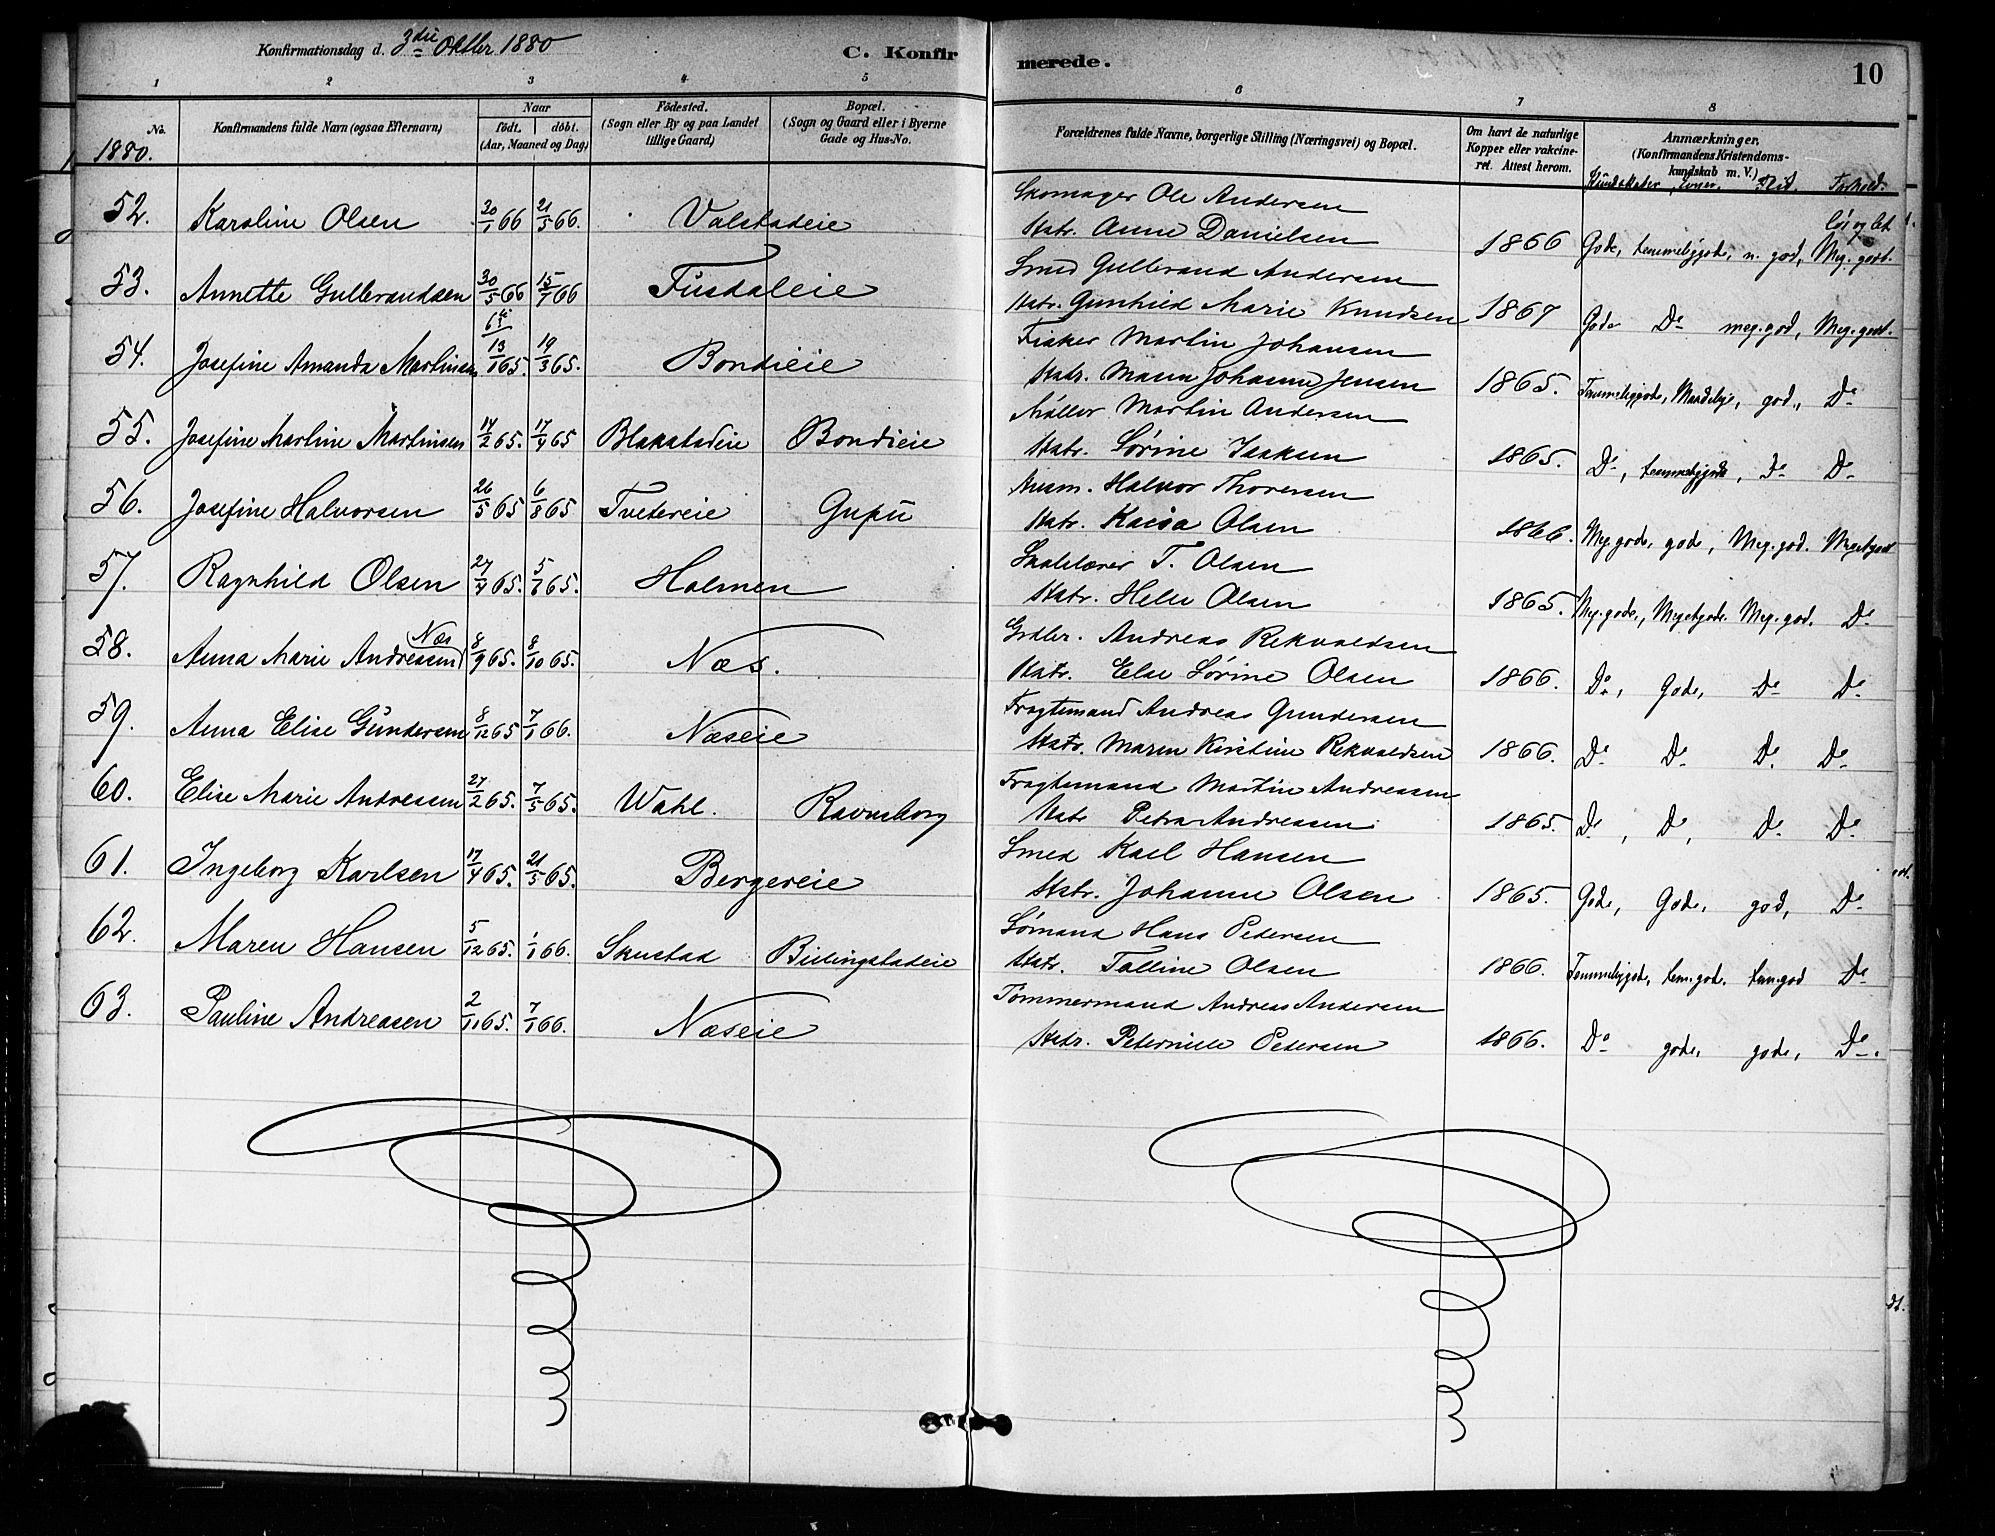 Konfirmationsdag d. 3die Oktbr 1880
C. Konfirmerede.
10
1 2 3 4 5 6 7 8
No. Konfirmandens fulde Navn (ogsaa Efternavn) Naar födt. döbt. (Aar, Maaned og Dag) Födested. (Sogn eller By og paa Landet tillige Gaard) Bopæl. (Sogn og Gaard eller i Byerne Gade og Hus-No. Forældrenes fulde Navne, borgerlige Stilling (Næringsvei) og Bopæl. Om havt de naturlige Kopper eller vakcineret. Attest herom. Anmærkninger. (Konfirmandens Kristendomskundskab m. V.)
1880. Kundskaber, Flid. Forhold.
Skomager Ole Andersen
52. Karoline Olsen 20/1 66 21/5 66. Valstadeie Hstr. Anne Danielsen 1866 Gode, temmeliggode, n. god, Meg. godt.
Smed Gulbrand Andersen
53. Annette Gulbrandsen 30/5 66 15/7 66 Fusdaleie Hstr. Gunhild Marie Knudsen 1867 Gode Do meg. god, Meg. godt.
Fisker Martin Johansen
54. Josefine Amanda Martinsen 13/1 65. 19/3 65. Bondieie Hstr. Maren Johanne Jensen 1865. Temmeliggode, god, Do
Møller Martin Andersen
55. Josefine Martine Martinsen 14/2 65. 17/4 65 Blakstadeie Bondieie Hstr. Sørine Isaksen 1865. Do, temmeliggode, Do Do
Husm. Halvor Thoresen
56. Josefine Halvorsen 26/5 65 6/8 65 Tvetereie Gupu Hstr. Kaisa Olsen 1866. Meg. gode, gode, Meg. god. Megetgodt
Skolelærer T. Olsen
57. Ragnhild Olsen 27/4 65. 5/6 65. Holmen Hstr. Helle Olsen 1865. Meg. gode, Megetgode. Meg. god. Do
Grdbr. Andreas Rekvaldsen
58. Anna Marie Andreasen (Næs) 8/9 65. 8/10 65. Næs. Hstr. Else Sørine Olsen 1866. Do, Gode, Do Do
Fragtemand Andreas Gundersen
59. Anna Elise Gundersen 8/12 65 7/1 66. Næseie Hstr. Maren Kirstine Rekvaldsen 1866. Do Do Do Do
Fragtemand Martin Andreasen
60. Elise Marie Andreasen 27/2 65. 7/5 65. Wahl. Ravnsborg Hstr Petra Andreasen 1865. Do, Do, Do Do
Smed Karl Hansen
61. Ingeborg Karlsen 17/4 65. 21/5 65. Bergereie Hstr. Johanne Olsen 1865. Gode, Gode, god, Do
Sømand Hans Pedersen
62. Maren Hansen 5/12 65. 1/1 66. Skustad Billingstadeie Hstr. Talline Olsen 1866. Temmeliggode, tem. god. tem. god Do
Tømmermand Andreas Andersen
63. Pauline Andreasen 2/11 65. 7/1 66. Næseie Hstr. Peternille Pedersen 1866. Do gode, gode, Do.